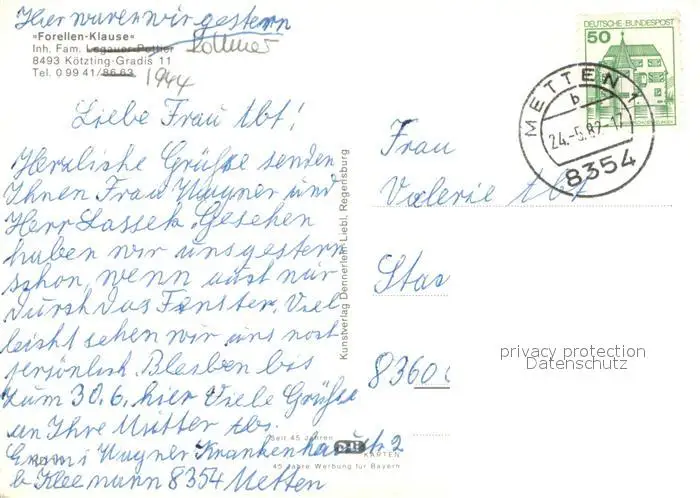 Hier waren wir gestern
»Forellen-Klause«
Inh. Fam. Legauer-Pottler Lottner
8493 Kötzting-Gradis 11
Tel. 0 99 41/86 63 1944
Liebe Frau Abt!
Herzliche Grüße senden
Ihnen Frau Wagner und
Herr Lassek. Gesehen
haben wir uns gestern
schon, wenn auch nur
durch das Fenster. Viel
leicht sehen wir uns noch
persönlich. Bleiben bis
zum 30.6. hier Viele Grüße
an Ihre Mutter Abs.
Wagner Krankenhausstr 2
b Kleemann 8354 Metten
Seit 45 Jahren
KARTEN
45 Jahre Werbung für Bayern
Kunstverlag Dennerlein Liebl, Regensburg
DEUTSCHE BUNDESPOST
50
METTEN 1
b
24.-5.82-17
8354
Frau
Valerie Abt
Stas
8360
privacy protection
Datenschutz